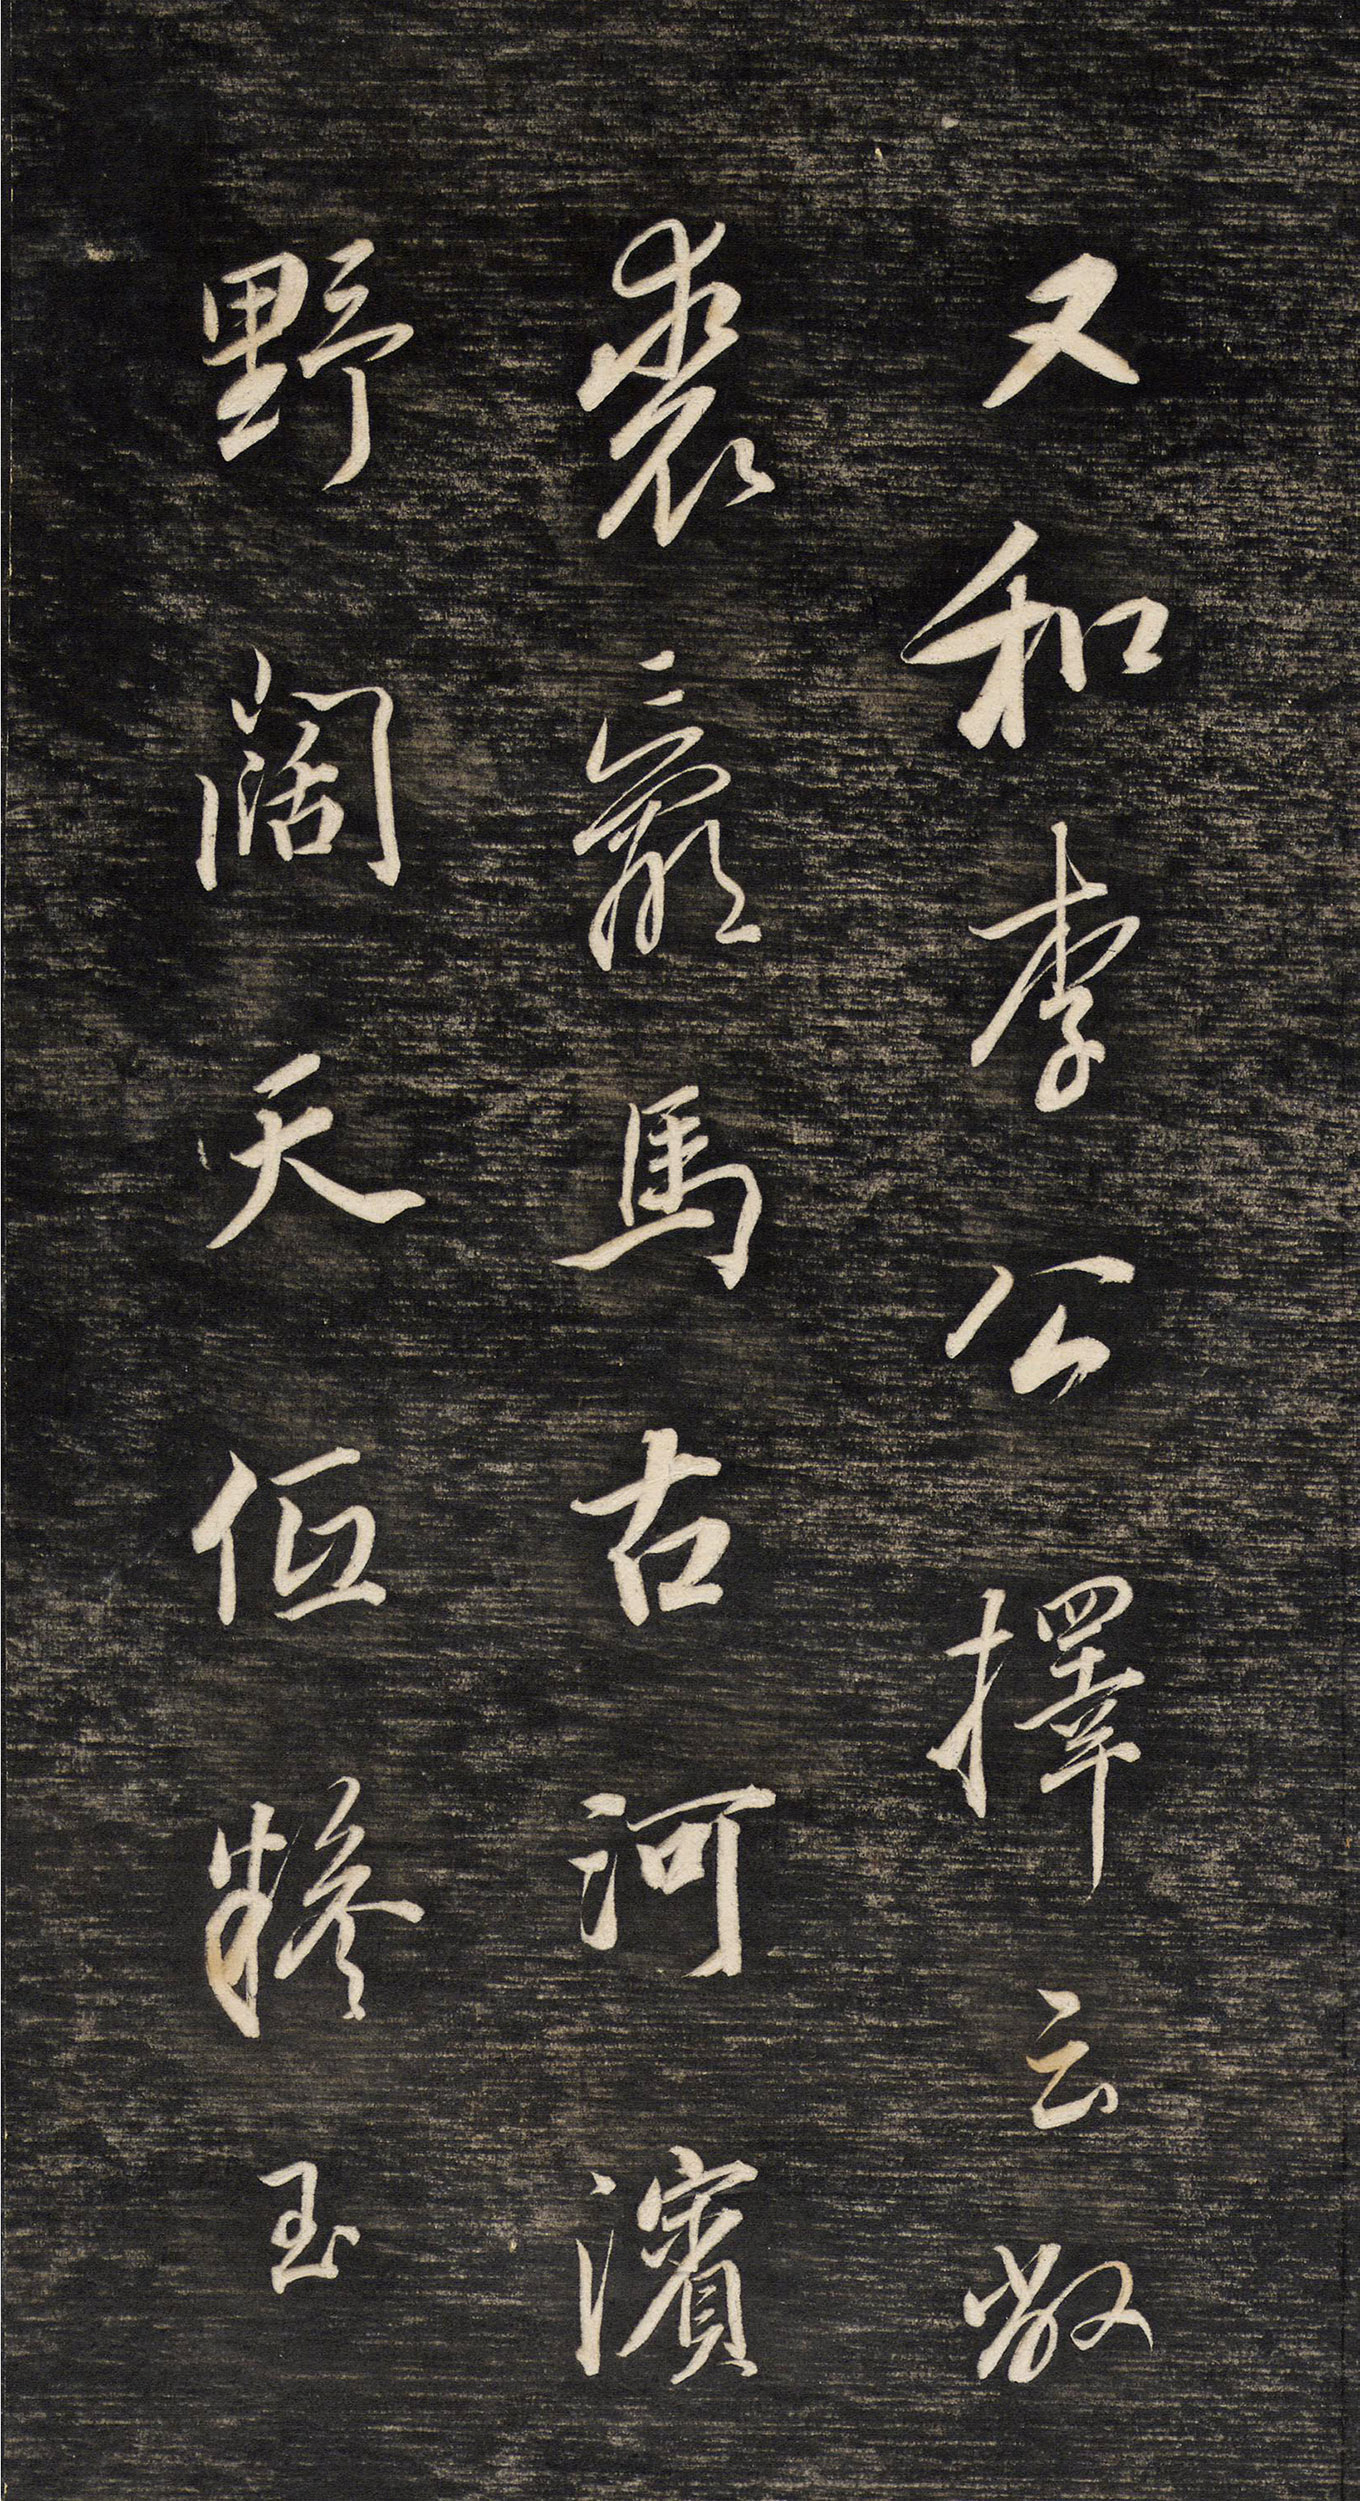 又和李公擇云敝
裘羸馬古河濱
野闊天低糝玉